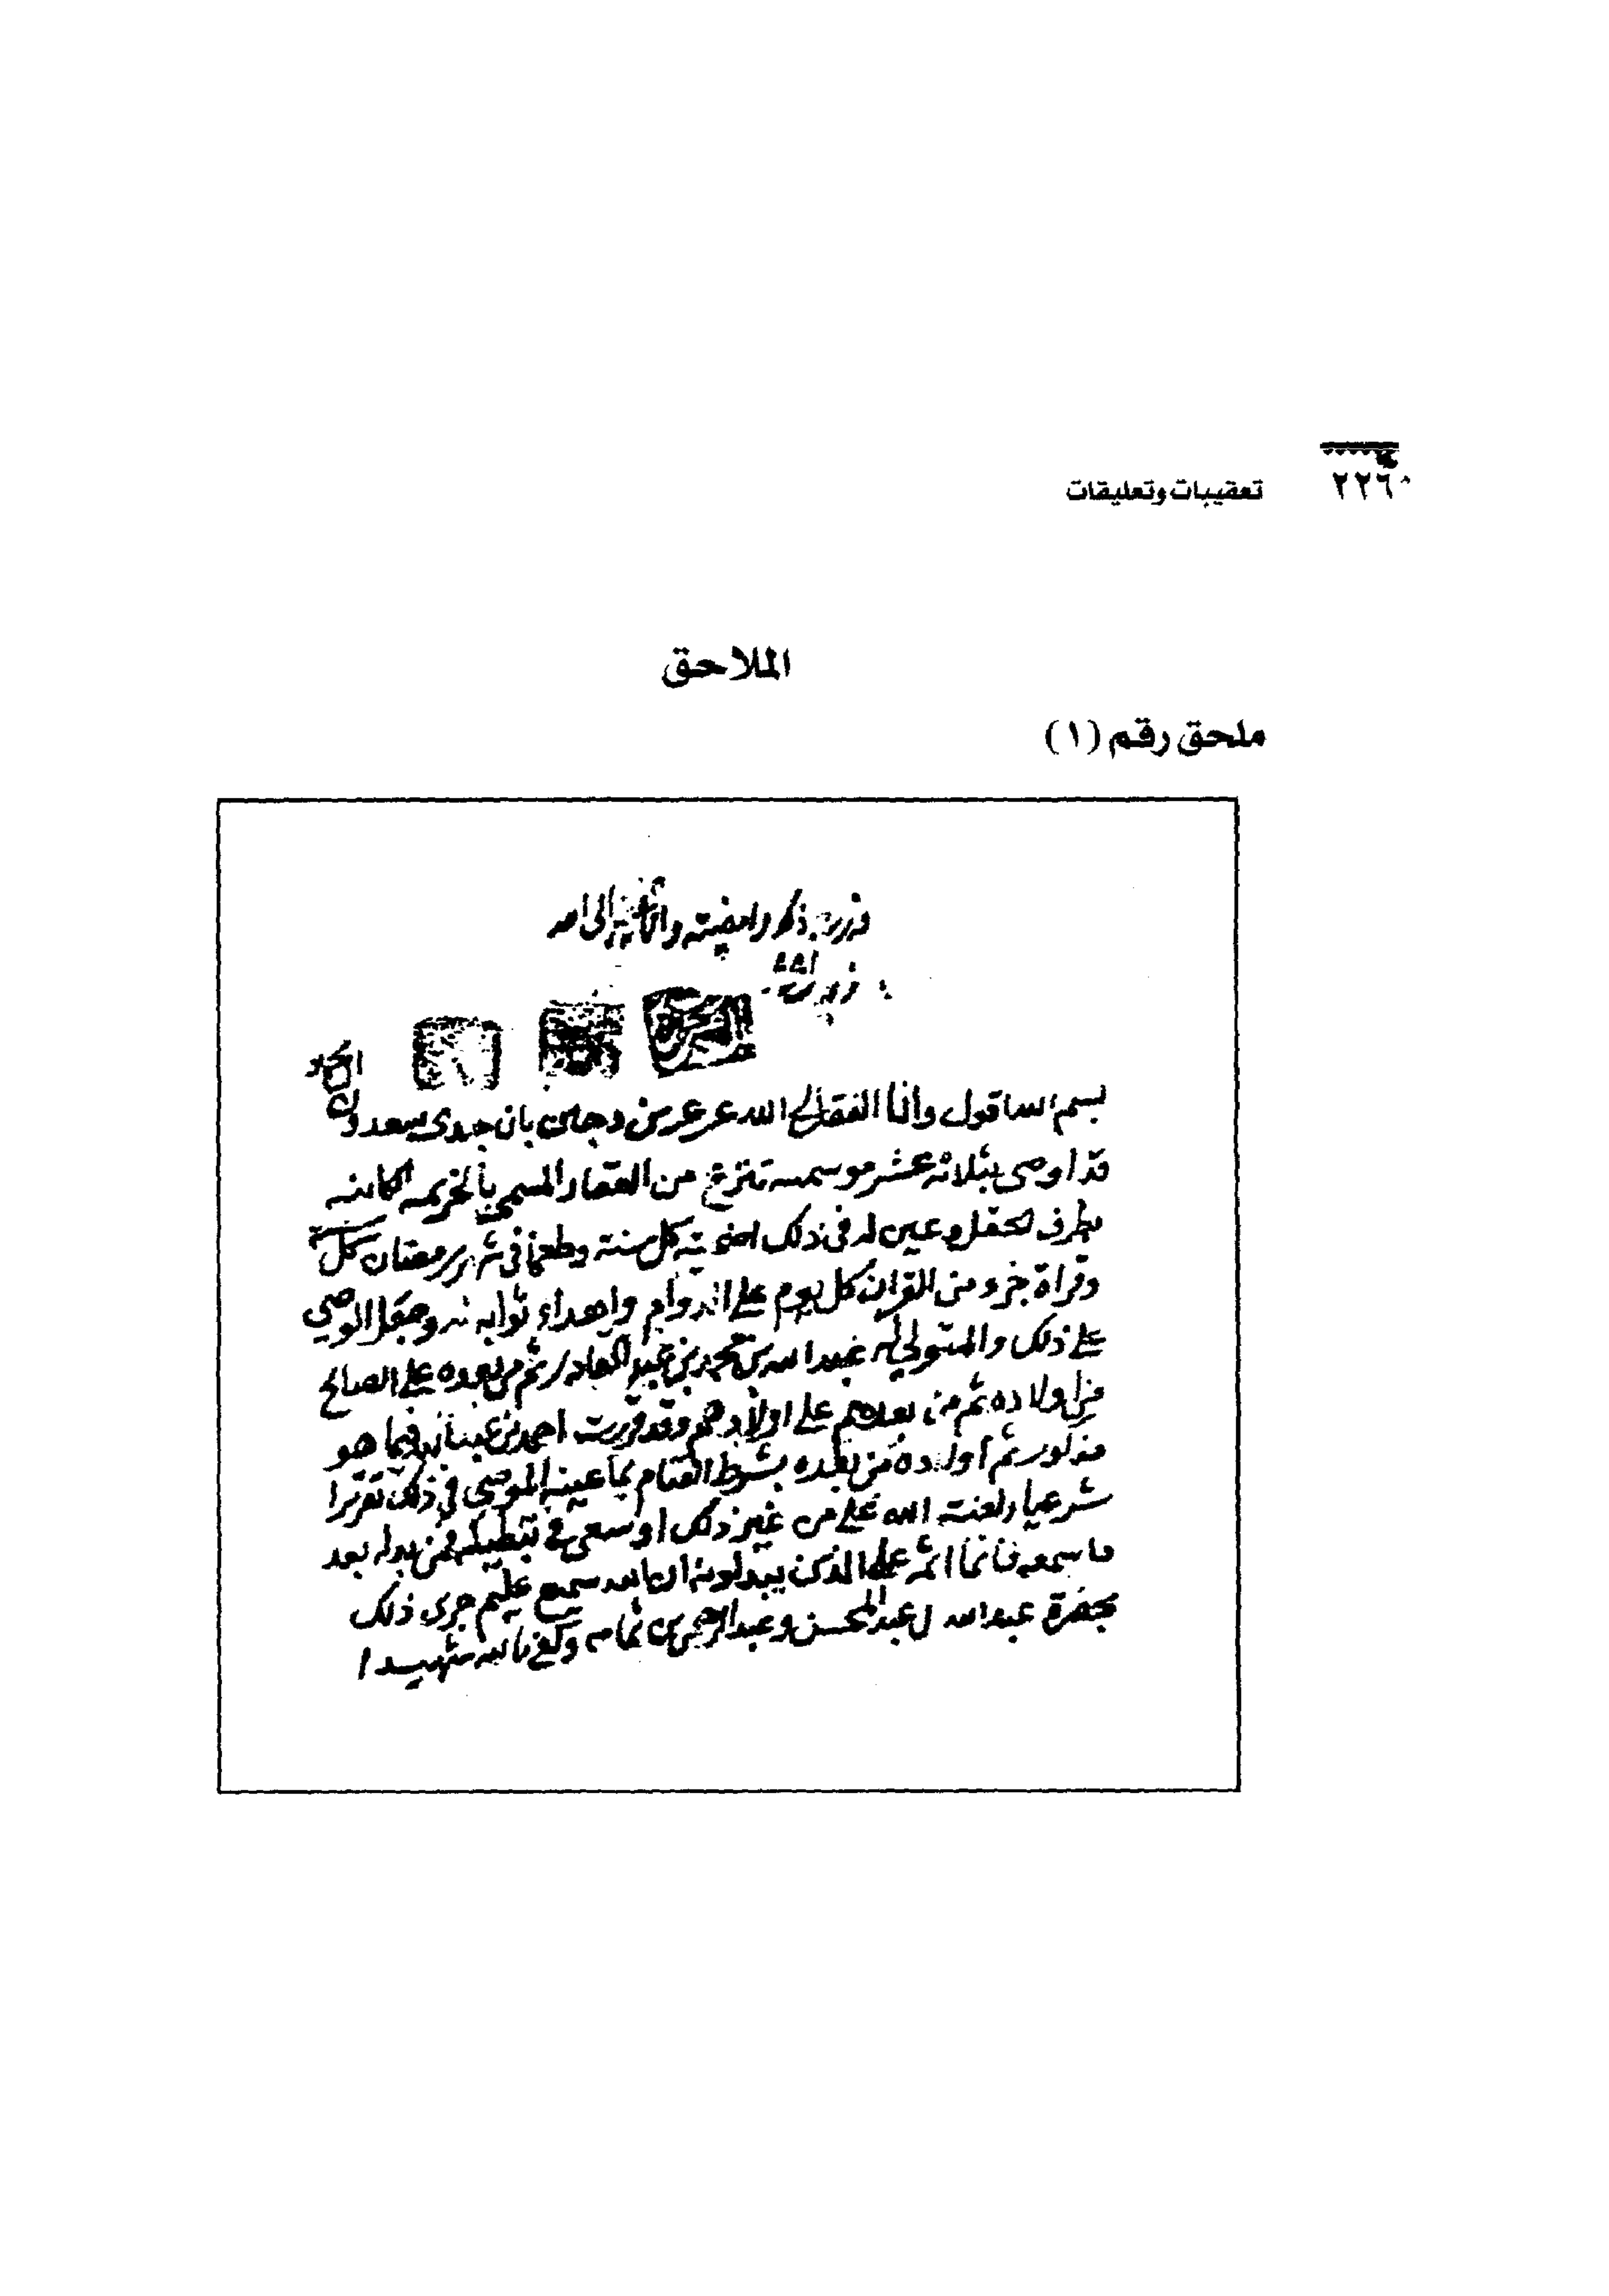 ٢٢٦
تعقيبات وتعليقات
الملاحق
ملحق رقم (١)
ذكر وامضيته وانا الى الله
بسم الله اقول وانا الفقير الى الله عرعر بن دجين بان جدي سعدون
قد اوصى بثلاثة عشر موسمه تنزع من العقار المسمى بالخزيمه الكاينه
بطرف الحقل وعين له في ذلك اضحيته كل سنته وطعما في شهر رمضان كل سنة
وقراة جزو من القران كل يوم على الدوام واهداء ثوابه له وجعل الوصي
على ذلك والمتولي له عبد الله بن محمد بن عبد القادر ثم من بعده على الصالح
من اولاده ثم من بعدهم على اولادهم وقد قررت احمد بن فيما هو
مذكور ثم اولاده من بعده بشرط القيام بما عينه الموصي في ذلك تقريرا
شرعيا ولعنت الله على من غير ذلك او سعى في تبطيله فمن بدله بعد
ما سمعه فانما اثمه على الذين يبدلونه ان الله سميع عليم جرى ذلك
بحضرة عبد الله ال عبد المحسن وعبد الرحمن بن ثمامه وكفى بالله شهيدا